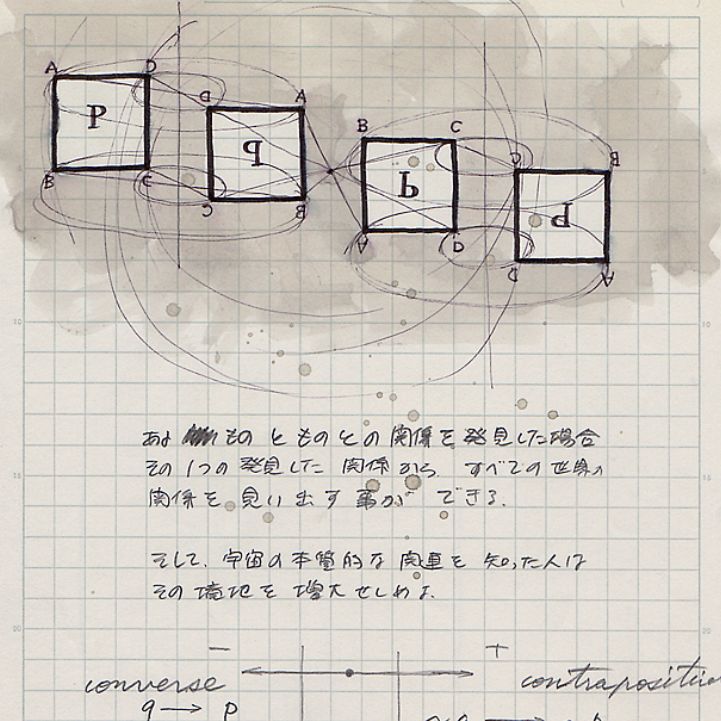 A D
D A
B C
C B
p
q
b
d
B C
C B
A D
D A
ある ものとものとの関係を発見した場合
その1つの発見した関係から、すべての世界の
関係を見い出す事ができる。
そして、宇宙の本質的な関連を知った人は
その境地を増大せしめよ.
− +
converse
q → p
10 10
15 15
20 20